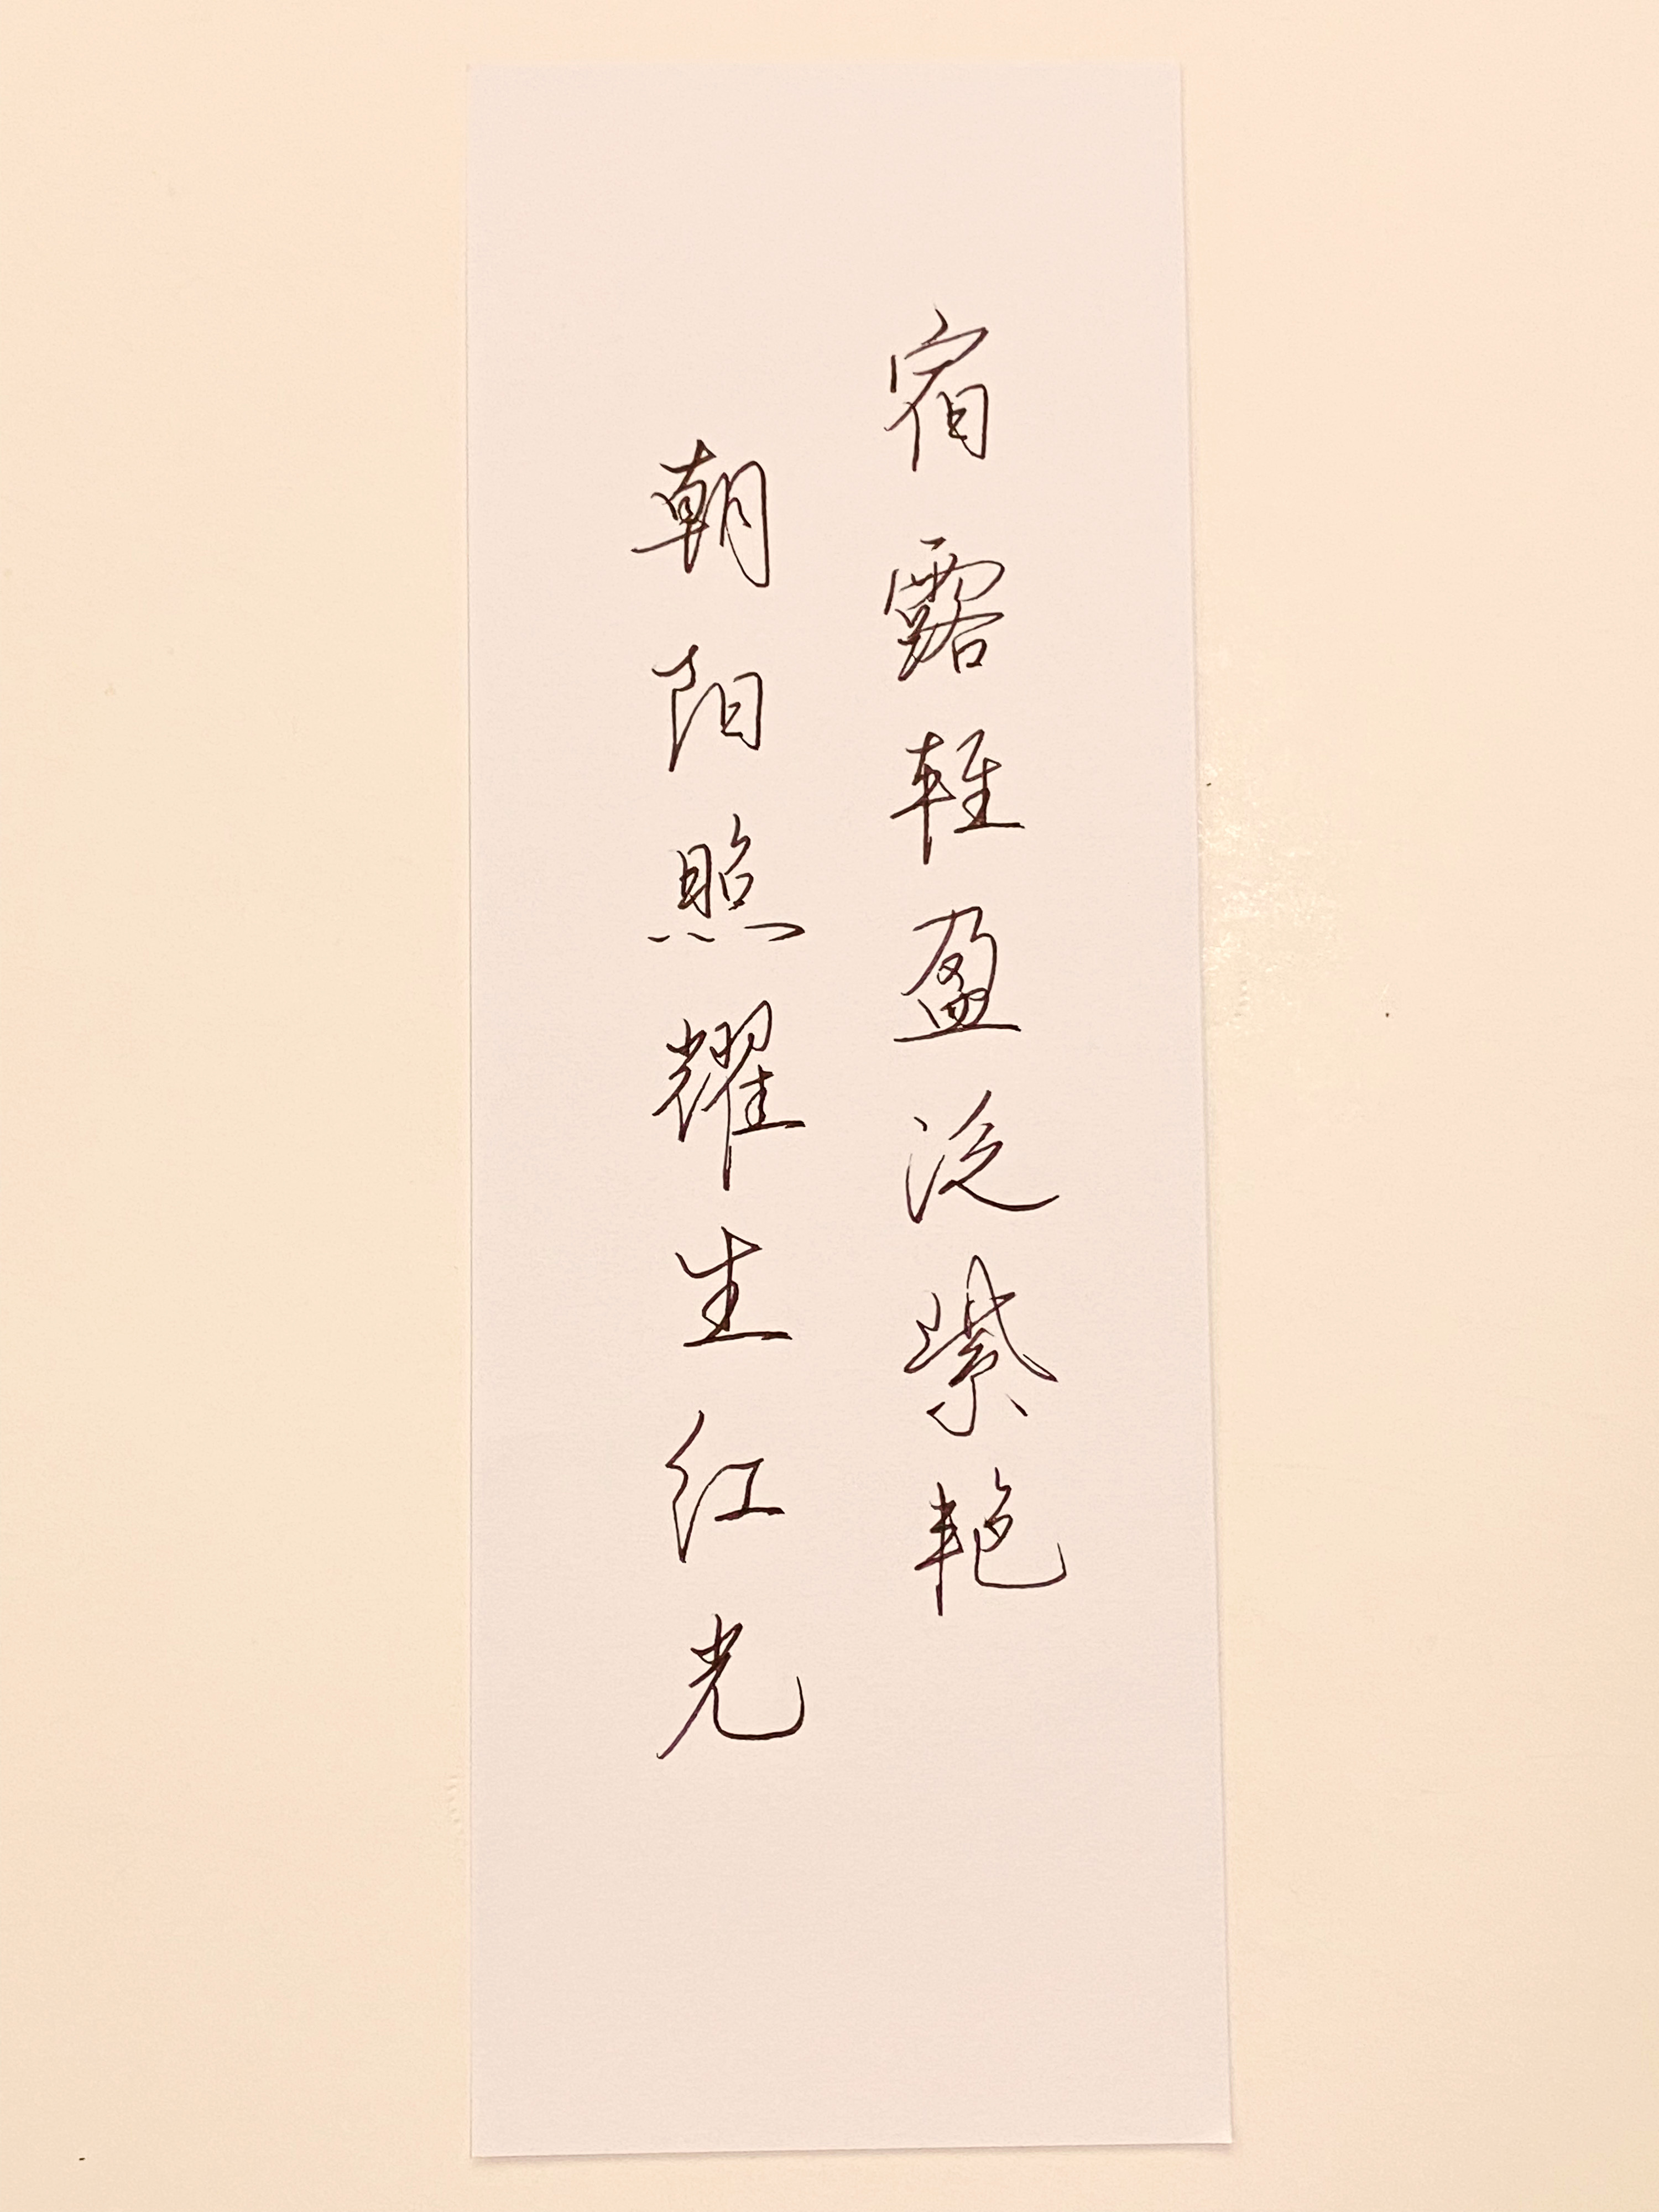 宿露轻盈泛紫艳
朝阳照耀生红光